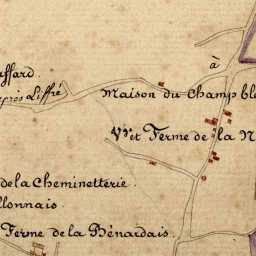 affard.
après Liffré
à
Maison du Champ bl
Vᵉ et Ferme de la N
de la Cheminetterie
llonnais
Ferme de la Bénardais.